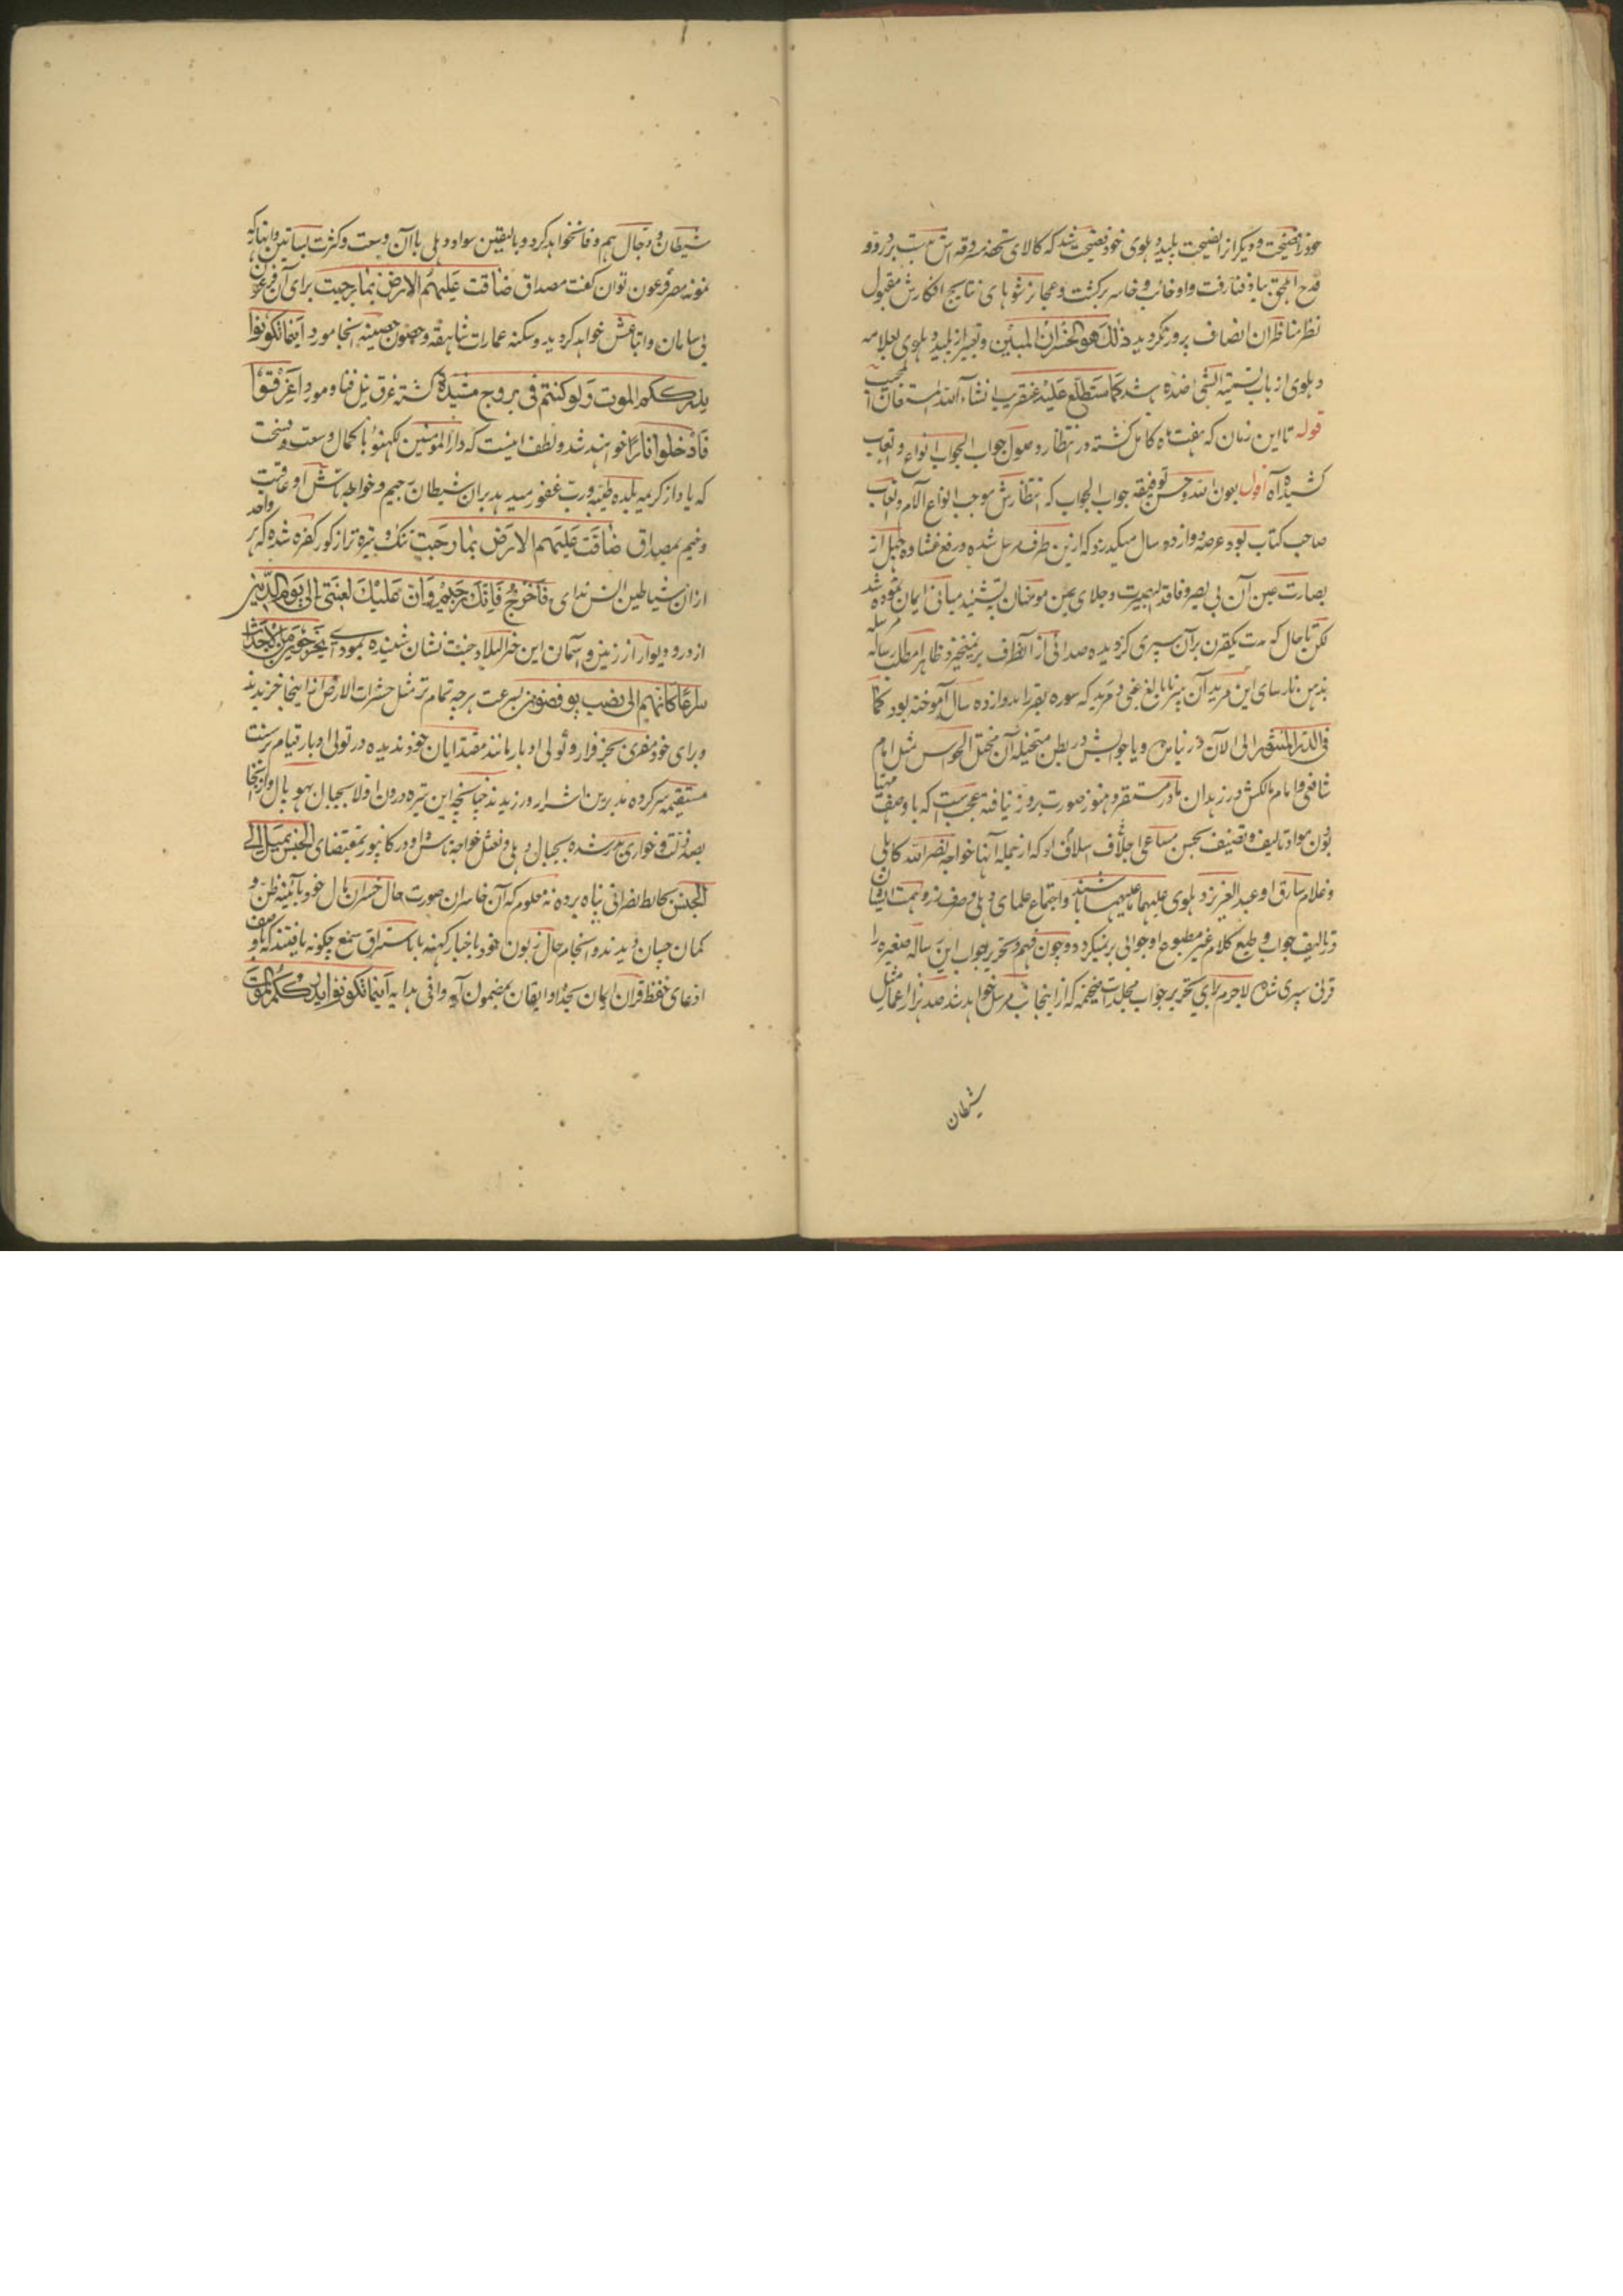 خود را فضیحت و دیگران را نصیحت پلید دهلوی خود فضیحت شد که کالای مسروقه اش دست برد دزد و
قدح احمق بباد فنا رفت و او خائب و خاسر برگشت و عجائز شوهای نتایج افکارش مقبول
نظر مناظران انصاف پرور نگردید ذلك هو الخسران المبین و تعبیر از پلید دهلوی بعلامه
دهلوی از باب تسمیة الشئ باسم ضده باشد کما ستطلع علیه عنقریب انشاء الله المستعان
قوله تا این زمان که هفت ماه کامل گذشته در انتظار وصول جواب الجواب انواع و تعاب
کشیده آه اقول بعون الله و حسن توفیقه جواب الجواب که انتظارش موجب انواع آلام و تعاب
صاحب کتاب بود عرصه دوازده سال میگذرد که ازین طرف مرسل شده و رفع غشاوه جهل از
بصارت عین آن بی بصر و فاقد البصیرت و جلای عین مومنان بتشئید مبانی ایمان نموده شد
لکن تا حال که مدت یکقرن بر آن سپری گردیده صدائی از آنطرف بر نمیخیزد ظاهرا مطلب رساله مرسله
بذهن نارسای این مرید آن پیر نابالغ غبی و مرید که سوره بقر را بدوازده سال آموخته بود کما
فی الدر المنثور الی الآن در نیامده و یا جوابش در بطن متخیله آن مختل الحواس مثل امام
شافعی و امام مالکش در زهدان مادر مستقر و هنوز صورت بروز نیافته عجب ست که با وصف
بودن مواد تالیف و تصنیف بحسن مساعی اجلاف اسلاف او که از جمله آنها خواجه نصر الله کابلی
و غلام سارق او عبد العزیز دهلوی علیهما ما علیهما باشند و اجتماع علمای دهلی و صرف زر و همت ایشان
در تالیف جواب و طبع کلام غیر مطبوع او جوابی بر نمیگردد و چون فهم و تحریر جواب این رساله صغیره را
قرنی سپری شده لاجرم برای تحریر جواب مجلدات ضخیمه که از اینجانب مرسل خواهد شد صد هزار عمر مثل
شیطان
شیطان و دجال هم وفا نخواهد کرد و بالیقین سواد دهلی با آن وسعت و کثرت بساتین و انهار که
نمونه مصر فرعون توان گفت مصداق ضاقت علیهم الارض بما رحبت برای آن فرعون
بی سامان و اتباعش خواهد گردید و سکنه عمارات شاهقه و حصون حصینه آنجا مورد اینما تکونوا
یدرککم الموت ولو کنتم فی بروج مشیدة گشته غرق نیل فنا و مورد اغرقوا
فادخلوا نارا خواهند شد و لطف اینست که دار المومنین لکهنؤ با کمال وسعت و فسحت
که یاد از کریمه بلدة طیبة و رب غفور میدهد بر آن شیطان رجیم و خواجه تاش او عاقبت
وخیم بمصداق ضاقت علیهم الارض بما رحبت تنگ و تیره تر از گور کفره شده که هر واحد
ازان شیاطین انس ندای فاخرج فانك رجیم و ان علیك لعنتی الی یوم الدین
از در و دیوار از زمین و آسمان این خیر البلاد جنت نشان شنیده بمودای یخرجون من الاجداث
سراعا کانهم الی نصب یوفضون بسرعت هر چه تمام تر مثل حشرات الارض از اینجا خزیدند
و برای خود مفری بجز فرار و تولی ادبار مانند مقتدایان خود ندیده در تولی ادبار قیام بر سنت
مستقیمه سرکرده مدبرین اشرار ورزیدند چنانچه این تیره درون اولا بحبال بهوپال و از آنجا
بصد ذلت و خواری بدر شده بحبال دهلی و نعثل خواجه تاش او در کانپور بمقتضای الجنس یمیل الی
الجنس بحائط نصرانی پناه برده نه معلوم که آن خاسران صورت حال خسران مآل خود بآئینه ظن و
گمان چسان دیدند و انجام حال زبون خود باخبار کهنه یا باستراق سمع چگونه یافتند که با وصف
ادعای حفظ قرآن ایمان بخدا و ایقان بمضمون آیه وافی هدایه اینما تکونوا یدرککم الموت